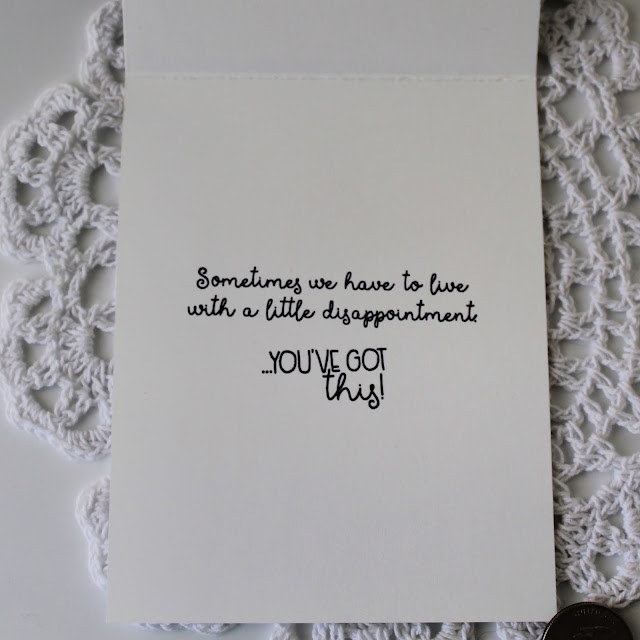 Sometimes we have to live
with a little disappointment.
...YOU'VE GOT
this!